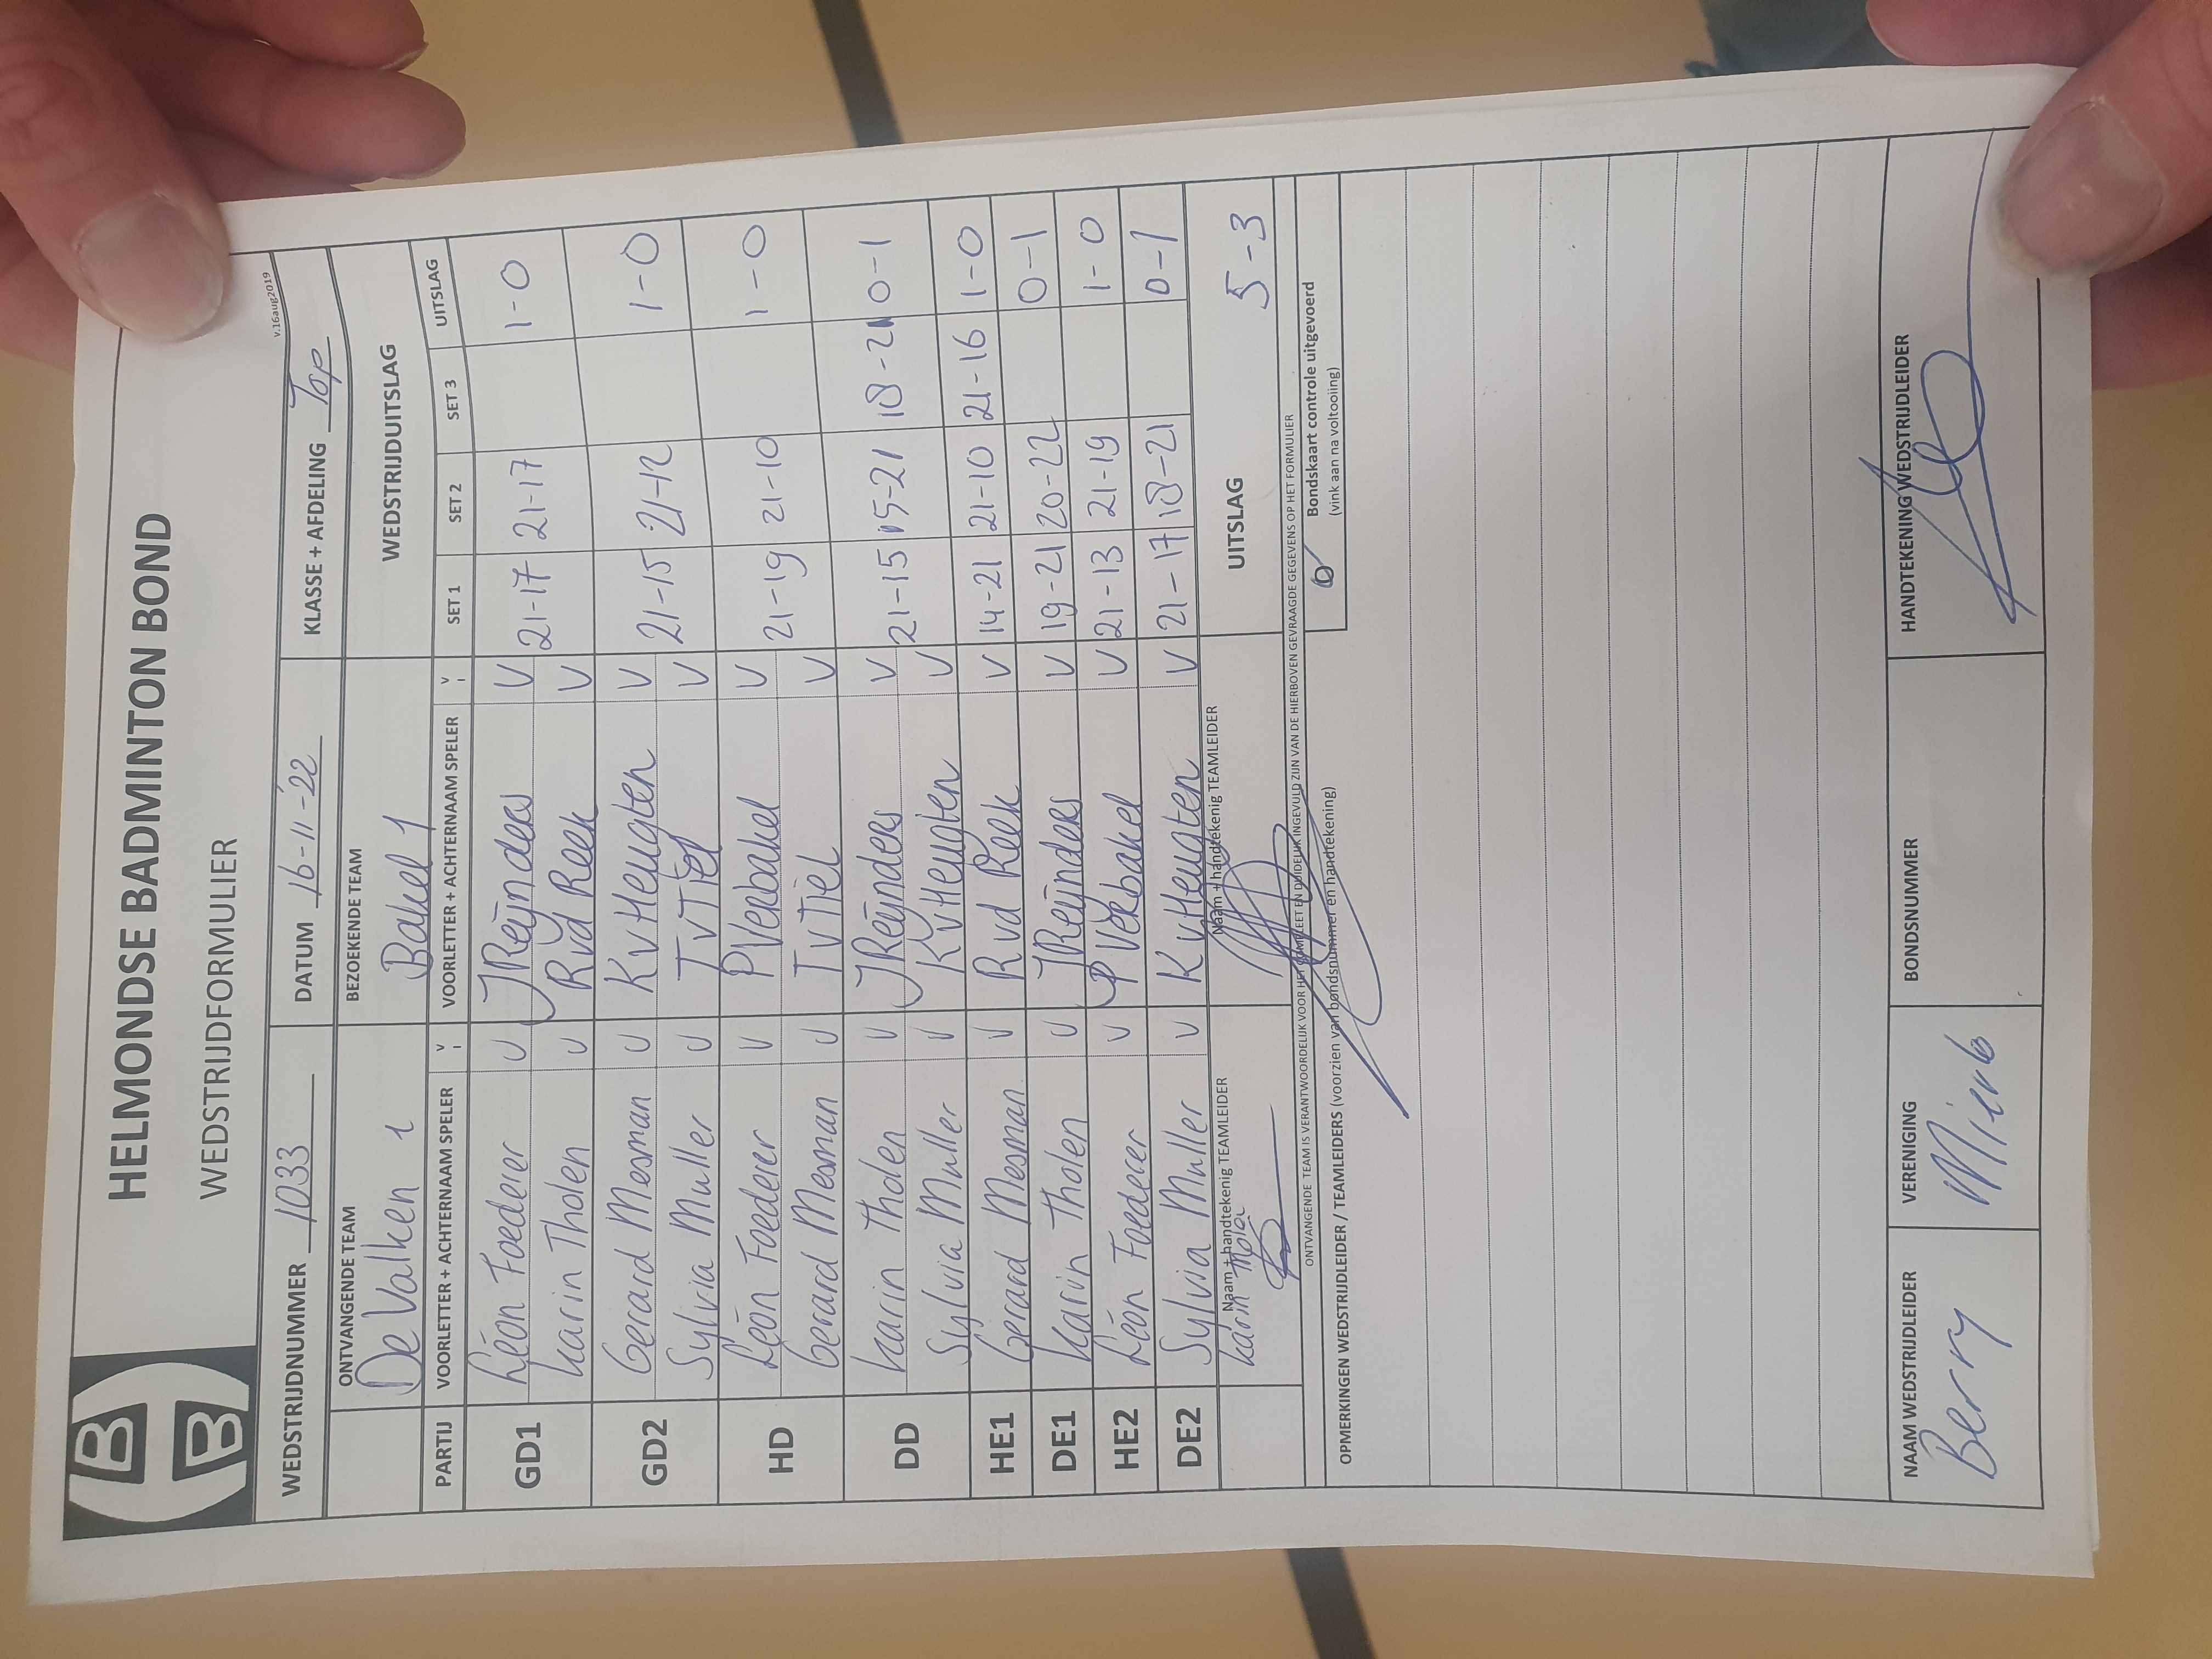 HELMONDSE BADMINTON BOND
WEDSTRIJDFORMULIER
v.16aug2019
WEDSTRIJDNUMMER 1033 DATUM 16-11-'22 KLASSE + AFDELING Top
ONTVANGENDE TEAM BEZOEKENDE TEAM WEDSTRIJDUITSLAG
De Valken 1 Bakel 1
PARTIJ VOORLETTER + ACHTERNAAM SPELER V I VOORLETTER + ACHTERNAAM SPELER V I SET 1 SET 2 SET 3 UITSLAG
GD1 Léon Foederer V J Reijnders V 21-17 21-17 1-0
Karin Tholen V R vd Reek V
GD2 Gerard Mesman V K v Heugten V 21-15 21-12 1-0
Sylvia Muller V T v Tiel V
HD Léon Foederer V P Verbakel V 21-19 21-10 1-0
Gerard Mesman V T v Tiel V
DD Karin Tholen V J Reijnders V 21-15 15-21 18-21 0-1
Sylvia Muller V K v Heugten V
HE1 Gerard Mesman V R vd Reek V 14-21 21-10 21-16 1-0
DE1 Karin Tholen V J Reijnders V 19-21 20-22 0-1
HE2 Léon Foederer V P Verbakel V 21-13 21-19 1-0
DE2 Sylvia Muller V K v Heugten V 21-17 18-21 0-1
Naam + handtekenig TEAMLEIDER Naam + handtekenig TEAMLEIDER UITSLAG 5-3
Karin Tholen
ONTVANGENDE TEAM IS VERANTWOORDELIJK VOOR HET COMPLEET EN DUIDELIJK INGEVULD ZIJN VAN DE HIERBOVEN GEVRAAGDE GEGEVENS OP HET FORMULIER
OPMERKINGEN WEDSTRIJDLEIDER / TEAMLEIDERS (voorzien van bondsnummer en handtekening)
Bondskaart controle uitgevoerd
(vink aan na voltooiing)
NAAM WEDSTRIJDLEIDER VERENIGING BONDSNUMMER HANDTEKENING WEDSTRIJDLEIDER
Berry Mierlo